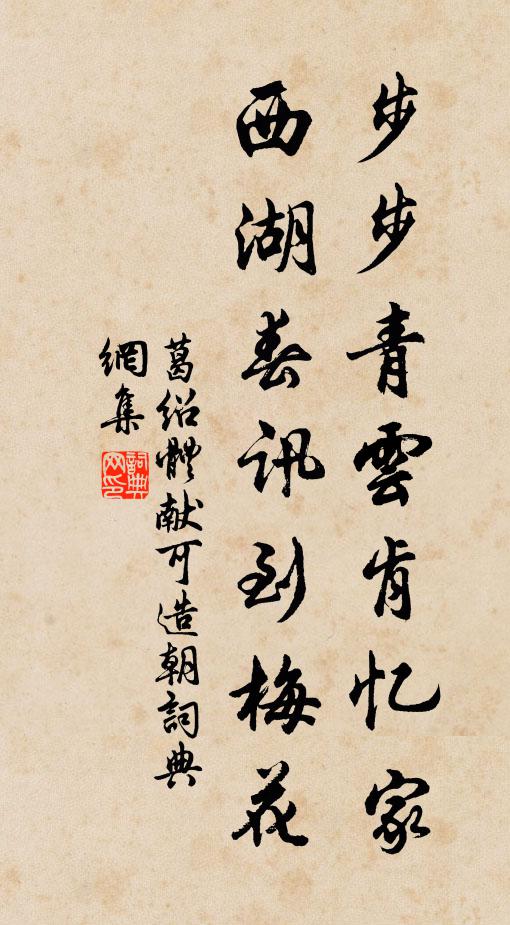 步步青雲肯忆家
西湖春讯到梅花
葛绍體献可造朝詞典
網集
詞典
网印